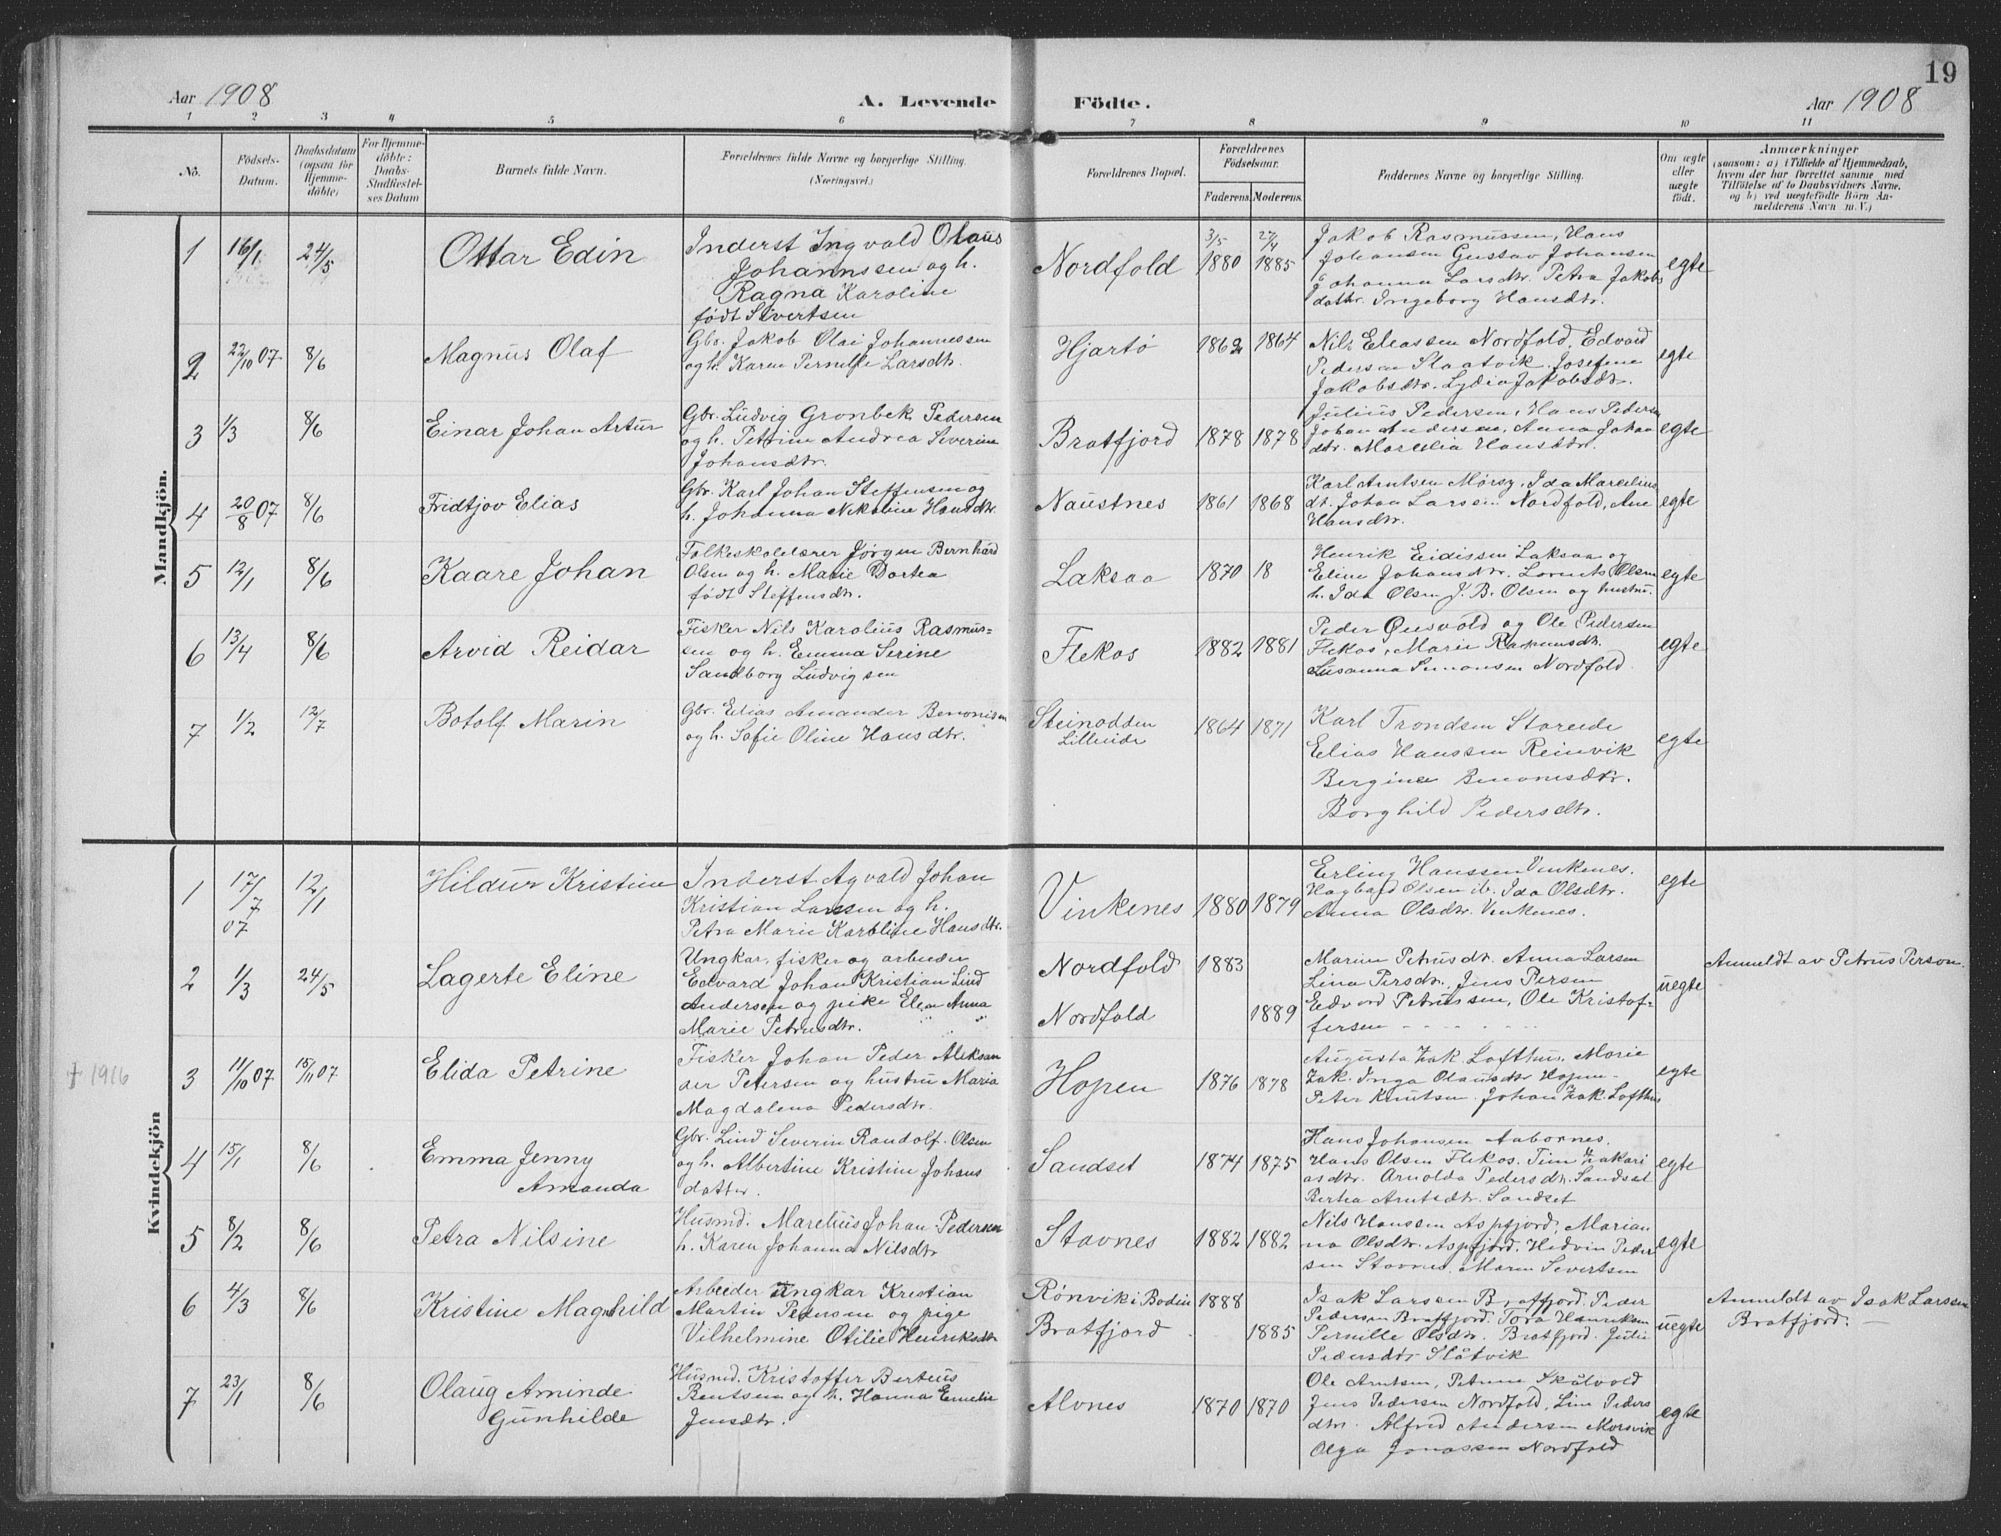 19
Aar 1908
A. Levende
Födte.
Aar 1908
1 2 3 4 5 6 7 8 9 10 11
No.
Födsels-
Datum.
Daabsdatum
(ogsaa for
Hjemme-
döbte)
For Hjemme-
döbte:
Daabs-
Stadfæstel-
ses Datum
Barnets fulde Navn.
Forældrenes fulde Navne og borgerlige Stilling.
(Næringsvei.)
Forældrenes Bopæl.
Forældrenes
Födselsaar.
Faderens.
Moderens.
Faddernes Navne og borgerlige Stilling.
Om ægte
eller
uægte
födt.
Anmærkninger
(saasom: a) i Tilfælde af Hjemmedaab,
hvem der har forrettet samme med
Tilföielse af to Daabsvidners Navne,
og b) ved uægtefödte Börn An-
melderens Navn m. V.)
Mandkjön.
1
16/1
24/5
Ottar Edin
Inderst Ingvald Olaus
Johannssen og h.
Ragna Karoline
født Sivertsen
Nordfold
3/5
1880
27/4
1885
Jakob Rasmussen, Hans
Johansen Gustav Johansen
Johanna Larsdtr. Petra Jakobs
datter. Ingeborg Hansdtr.
egte
2
22/10 07
8/6
Magnus Olaf
Gbr. Jakob Olai Johannessen
og h. Karen Pernille Larsdtr.
Hjartö
1862 1864
Nils Eleassen Nordfold, Edvard
Pedersen Slaatvik. Josefine
Jakobsdtr. Lydia Jakobsdtr.
egte
3
1/3
8/6
Einar Johan Artur
Gbr. Ludvig Gronbek Pedersen
og h. Petrine Andrea Severine
Johansdtr.
Bratfjord
1878 1878
Julius Pedersen, Hans Pedersen
Johan Andersen, Anna Johan
dtr. Marselia Hansdtr.
egte
4
20/8 07
8/6
Fridtjov Elias
Gbr. Karl Johan Steffensen og
h. Johanna Nikoline Hansdtr.
Naustnes
1861 1868
Karl Arntsen Mørsry, Ida Marcelius
dt. Johan Larsen Nordfold, Ane
Hansdtr.
egte
5
12/1
8/6
Kaare Johan
Folkeskolelærer Jørgen Bernhard
Olsen og h. Marie Dortea
født Steffensdtr.
Laksaa
1870 18
Henrik Eidissen Laksaa og
Eline Johansdtr. Lorents Olsen
h. Ida Olsen J. B. Olsen og hustru.
egte
6
13/4
8/6
Arvid Reidar
Fisker Nils Karolius Rasmus-
sen og h. Emma Serine
Sandborg Ludvigsen
Flekos
1882 1881
Peder Quvold og Ole Pedersen
Flekos, Marie Rasmusdtr.
Susanna Simonsen Nordfold.
egte
7
1/2
12/7
Botolf Marin
Gbr. Edias Amander Benonisen
og h. Sofie Oline Hansdtr.
Steinodden
Lilleide
1864 1871
Karl Trondsen Storeide
Elias Hanssen Reinvik
Bergine Benonisdtr.
Borghild Pedersdtr.
egte
Kvindekjön
1
17/7
07
12/1
Hildur Kristine
Inderst Agvald Johan
Kristian Larssen og h.
Petra Marie Karoline Hansdtr.
Vinkenes
1880 1879
Erling Hanssen Vinkenes.
Hagbard Olsen ib. Ida Olsdtr.
Anna Olsdtr. Vinkenes.
egte
2
1/3
24/5
Lagerte Eline
Ungkar, fisker og arbeider
Edvard Johan Kristian Lind
Andersen og pike Elen Anna
Marie Petrusdtr.
Nordfold
Nordfold
1883
1889
Marine Petrusdt. Anna Larsen
Lina Persdtr. Jens Persen
Edvard Petrussen, Ole Kristof-
fersen
uegte
Anmeldt av Petrus Person.
† 1916
3
11/10 07
15/11 07
Elida Petrine
Fisker Johan Peder Aleksan
der Petersen og hustru Maria
Magdalena Pedersdtr.
Hopen
1876 1878
Augusta Zak. Lofthus. Marie
Zak. Inga Olausdtr Hopen
Peter Knutsen. Johan Zak. Lofthus
egte
4
15/1
8/6
Emma Jenny
Amanda
Gbr. Lind Severin Randolf Olsen
og h. Albertine Kristine Johans
datter.
Sandset
1874 1875
Hans Johansen Aabornes.
Hans Olsen Flekos. Tine Zakari
asdtr. Arnolda Pedersdtr. Sandset
Bertea Arntsdtr. Sandset
egte
5
8/2
8/6
Petra Nilsine
Husmd. Marelius Johan Pedersen
h. Karen Johanna Nilsdtr
Stavnes
1882 1882
Nils Hanssen Aspfjord, Marian
na Olsdtr. Aspfjord. Hedvin Peder
sen Stavnes. Maren Severtsen
egte
6
4/3
8/6
Kristine Maghild
Arbeider Ungkar Kristian
Martin Pedersen og pige
Vilhelmine Otilie Henriksdtr
Rønvik i Bodin
Bratfjord
1888
1885
Isak Larssen Bratfjord. Peder
Pedersen Bratfjord. Tora Henriksen
Pernille Olsdtr. Bratfjord. Julie
Pedersdtr Slåtvik
uegte
Anmeldt av Isak Larssen
Bratfjord.
7
23/1
8/6
Olaug Aminde
Gunhilde
Husmd. Kristoffer Berteus
Bentsen og h. Hanna Emelie
Jensdtr.
Alvnes
1870 1870
Ole Arntsen, Petrine Skålvold
Jens Pedersen Nordfold, Line Peders
dtr. Alfred Andersen Morsvik
Olga Jonassen Nordfold
egte